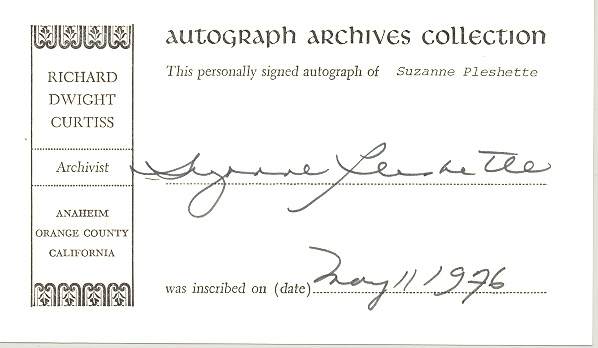 RICHARD
DWIGHT
CURTISS
Archivist
ANAHEIM
ORANGE COUNTY
CALIFORNIA
AUTOGRAPH ARCHIVES COLLECTION
This personally signed autograph of Suzanne Pleshette
Suzanne Pleshette
was inscribed on (date) May 11 1976